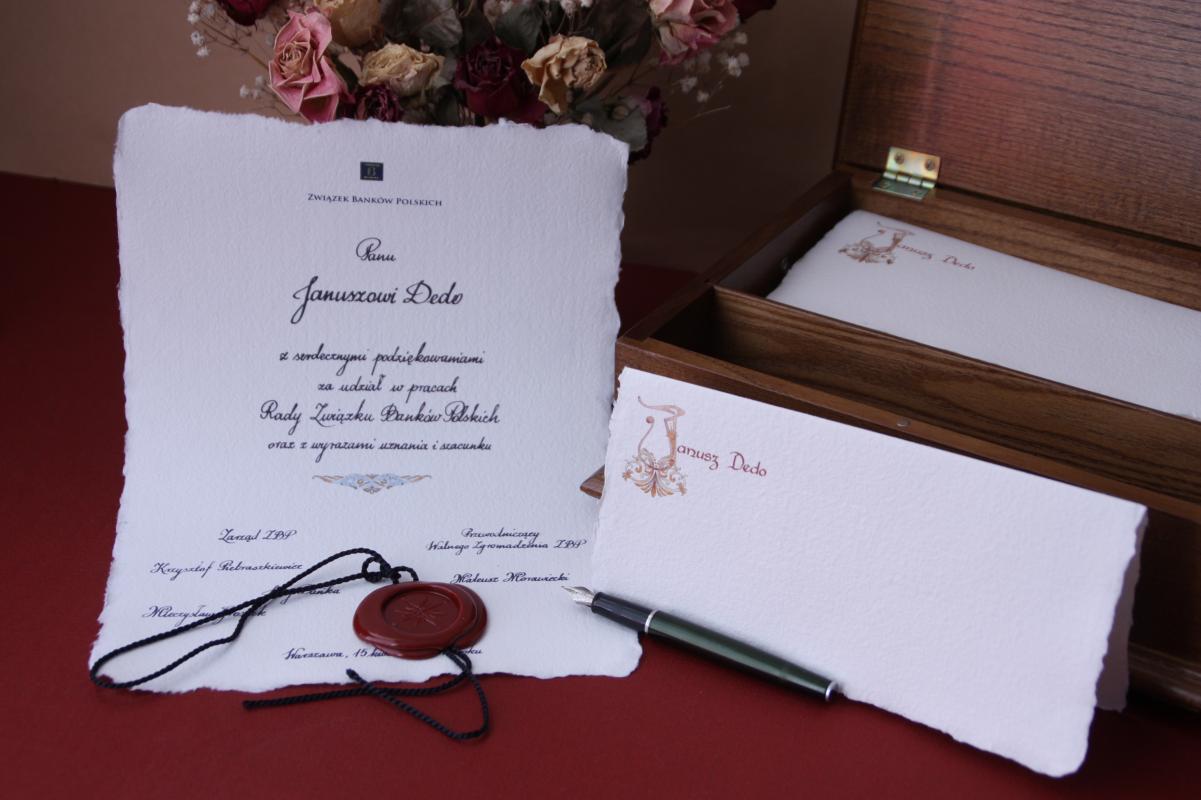 Związek Banków Polskich
Panu
Januszowi Dedo
z serdecznymi podziękowaniami
za udział w pracach
Rady Związku Banków Polskich
oraz z wyrazami uznania i szacunku
Zarząd ZBP
Krzysztof Pietraszkiewicz
Mieczysław
Przewodniczący
Walnego Zgromadzenia ZBP
Mateusz Morawiecki
Warszawa, 15
Janusz Dedo
Janusz Dedo